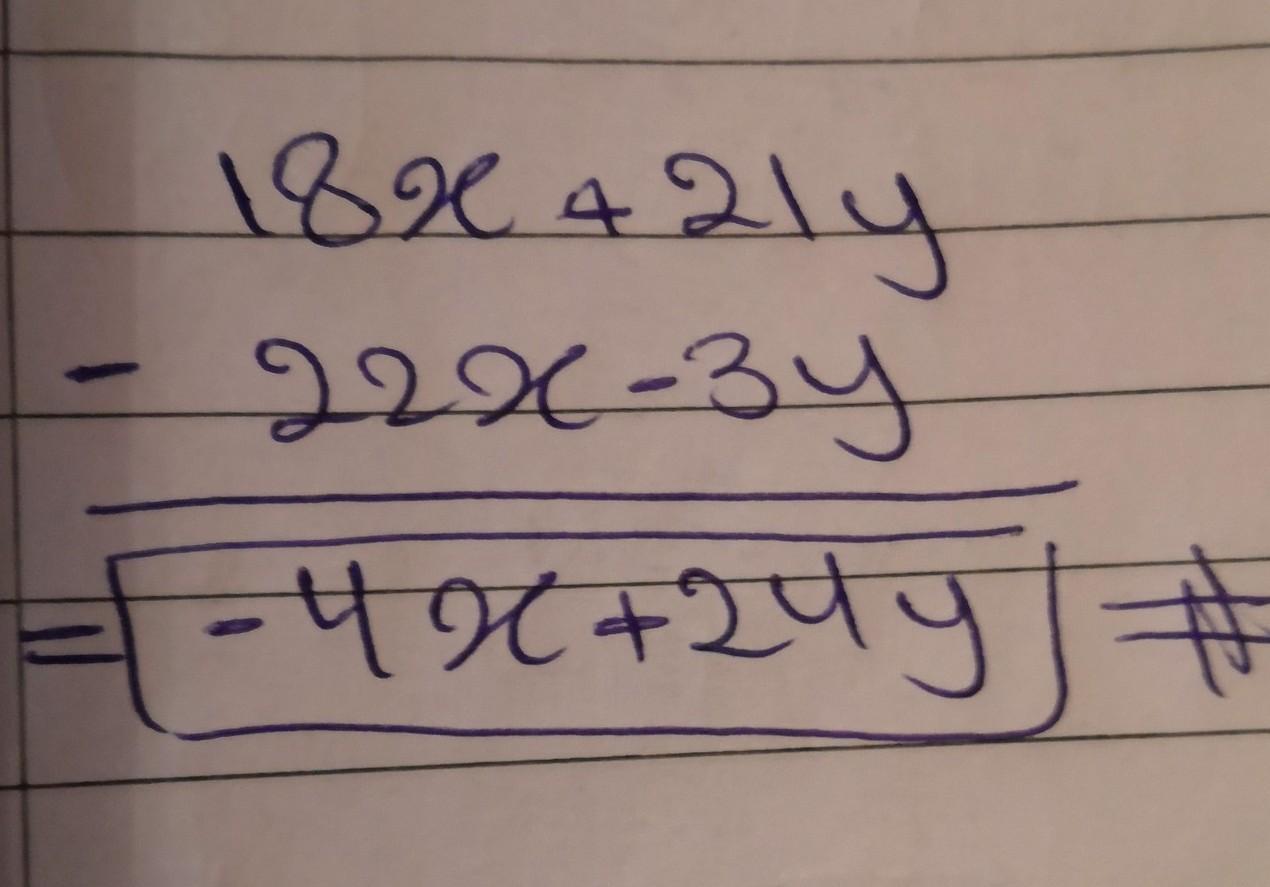 18x + 21y
- 22x - 3y
= -4x + 24y #